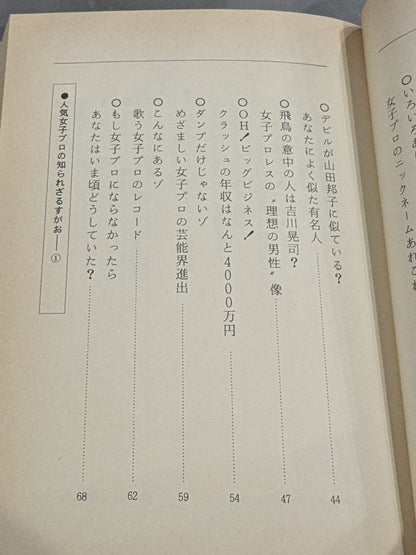 ○いろいろあ
女子プロのニックネームあれこれ
○デビルが山田邦子に似ている?
あなたによく似た有名人……44
○飛鳥の意中の人は吉川晃司?
女子プロレスの〝理想の男性〟像……47
○OH!ビッグビジネス!
クラッシュの年収はなんと4000万円……54
○ダンプだけじゃないゾ
めざましい女子プロの芸能界進出……59
○こんなにあるゾ
歌う女子プロのレコード……62
○もし女子プロにならなかったら
あなたはいま頃どうしていた?……68
●人気女子プロの知られざるすがお——①